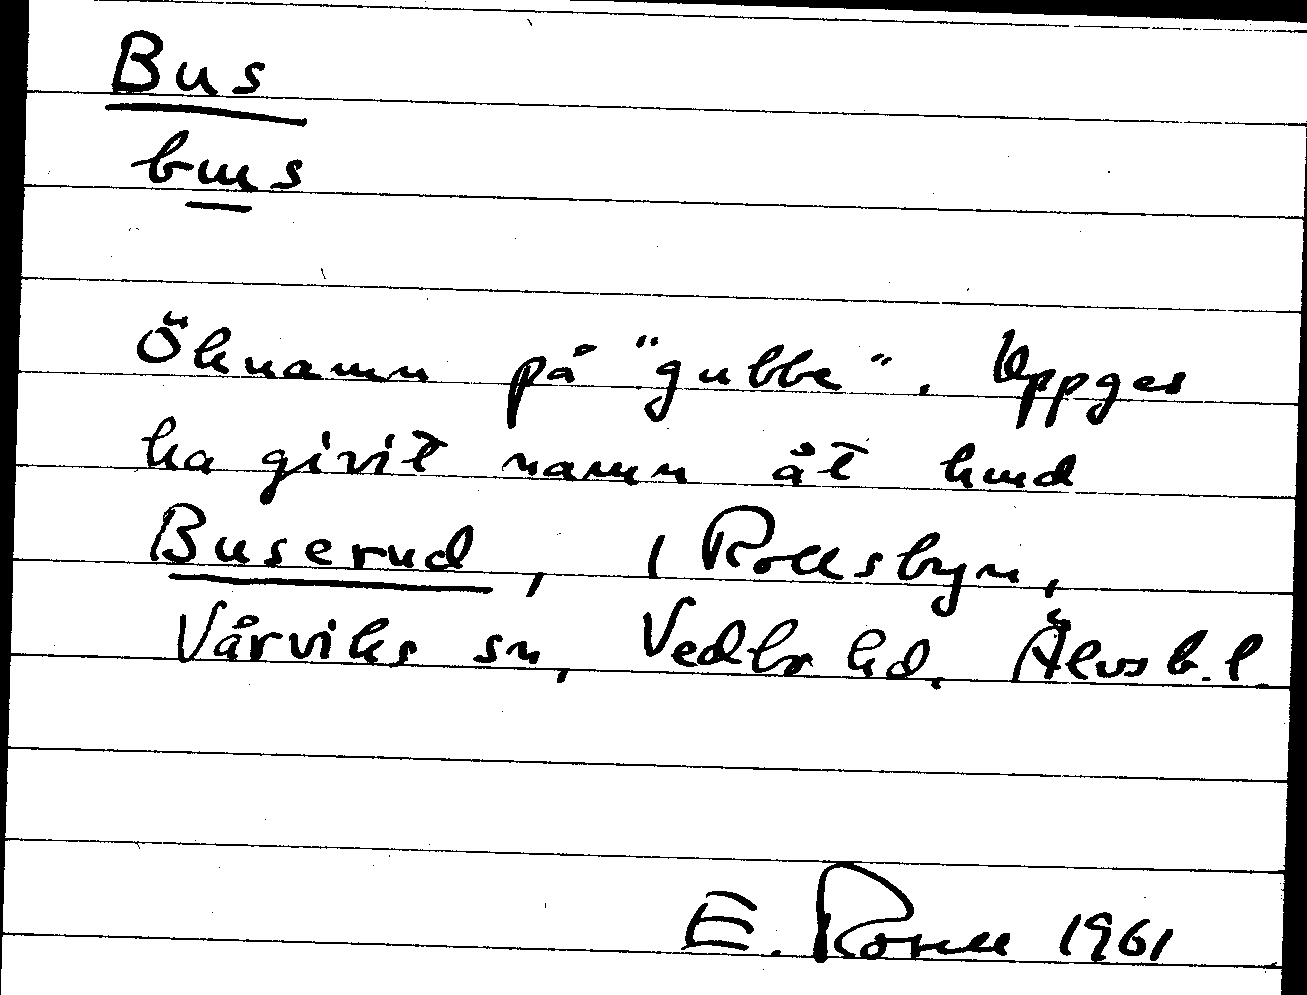 Bus
bus
Öknamn på "gubbe". Uppges
ha givit namn åt hmd
Buserud, i Rollsbyn,
Vårviks sn, Vedbo hd. Älvsb. l.
E. Rosell 1961